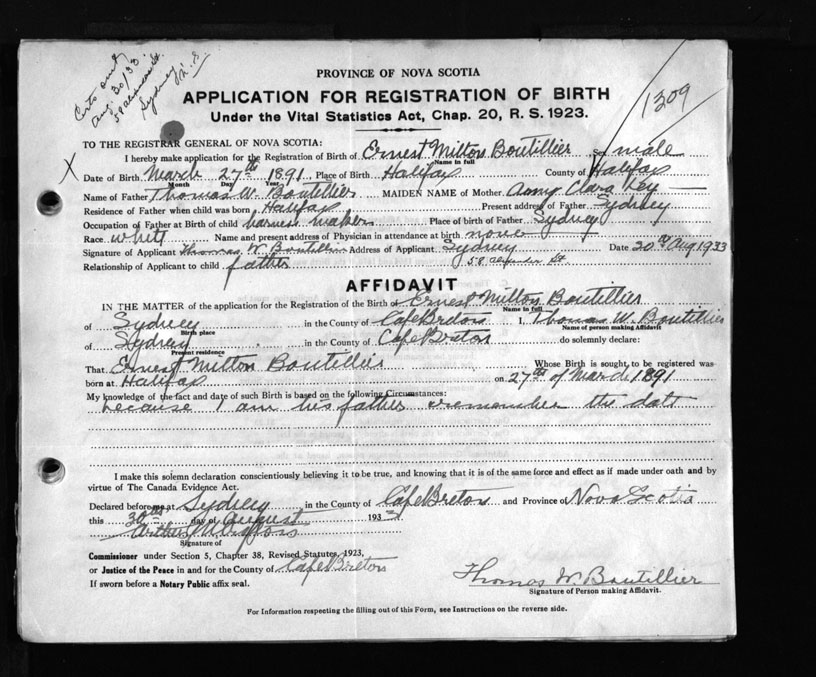 Certs out
Aug 30/33
58 Alexander St.
Sydney
N.S.
1309
PROVINCE OF NOVA SCOTIA
APPLICATION FOR REGISTRATION OF BIRTH
Under the Vital Statistics Act, Chap. 20, R. S. 1923.
TO THE REGISTRAR GENERAL OF NOVA SCOTIA:
I hereby make application for the Registration of Birth of Ernest Milton Boutillier male
Name in full
X Date of Birth March 27th 1891 Place of Birth Halifax County of Halifax
Month Day Year
Name of Father Thomas W. Boutillier MAIDEN NAME of Mother Amy Clara Key
Residence of Father when child was born Halifax Present address of Father Sydney
Occupation of Father at Birth of child harness maker Place of birth of Father Sydney
Race white Name and present address of Physician in attendance at birth none
Signature of Applicant Thomas W. Boutillier Address of Applicant Sydney Date 20th Aug 1933
Relationship of Applicant to child father 58 Alexander St
AFFIDAVIT
IN THE MATTER of the application for the Registration of the Birth of Ernest Milton Boutillier
Name in full
of Sydney in the County of Cape Breton I, Thomas W. Boutillier
Birth place Name of person making Affidavit
of Sydney in the County of Cape Breton do solemnly declare:
Present residence
That Ernest Milton Boutillier Whose Birth is sought to be registered was
born at Halifax on 27th of March 1891
My knowledge of the fact and date of such Birth is based on the following Circumstances:
because I am his father & remember the date
I make this solemn declaration conscientiously believing it to be true, and knowing that it is of the same force and effect as if made under oath and by
virtue of The Canada Evidence Act.
Declared before me at Sydney in the County of Cape Breton and Province of Nova Scotia
this 30th day of August 193
Arthur
Signature of
Commissioner under Section 5, Chapter 38, Revised Statutes, 1923,
or Justice of the Peace in and for the County of Cape Breton
If sworn before a Notary Public affix seal.
Thomas W. Boutillier
Signature of Person making Affidavit.
For Information respecting the filling out of this Form, see Instructions on the reverse side.